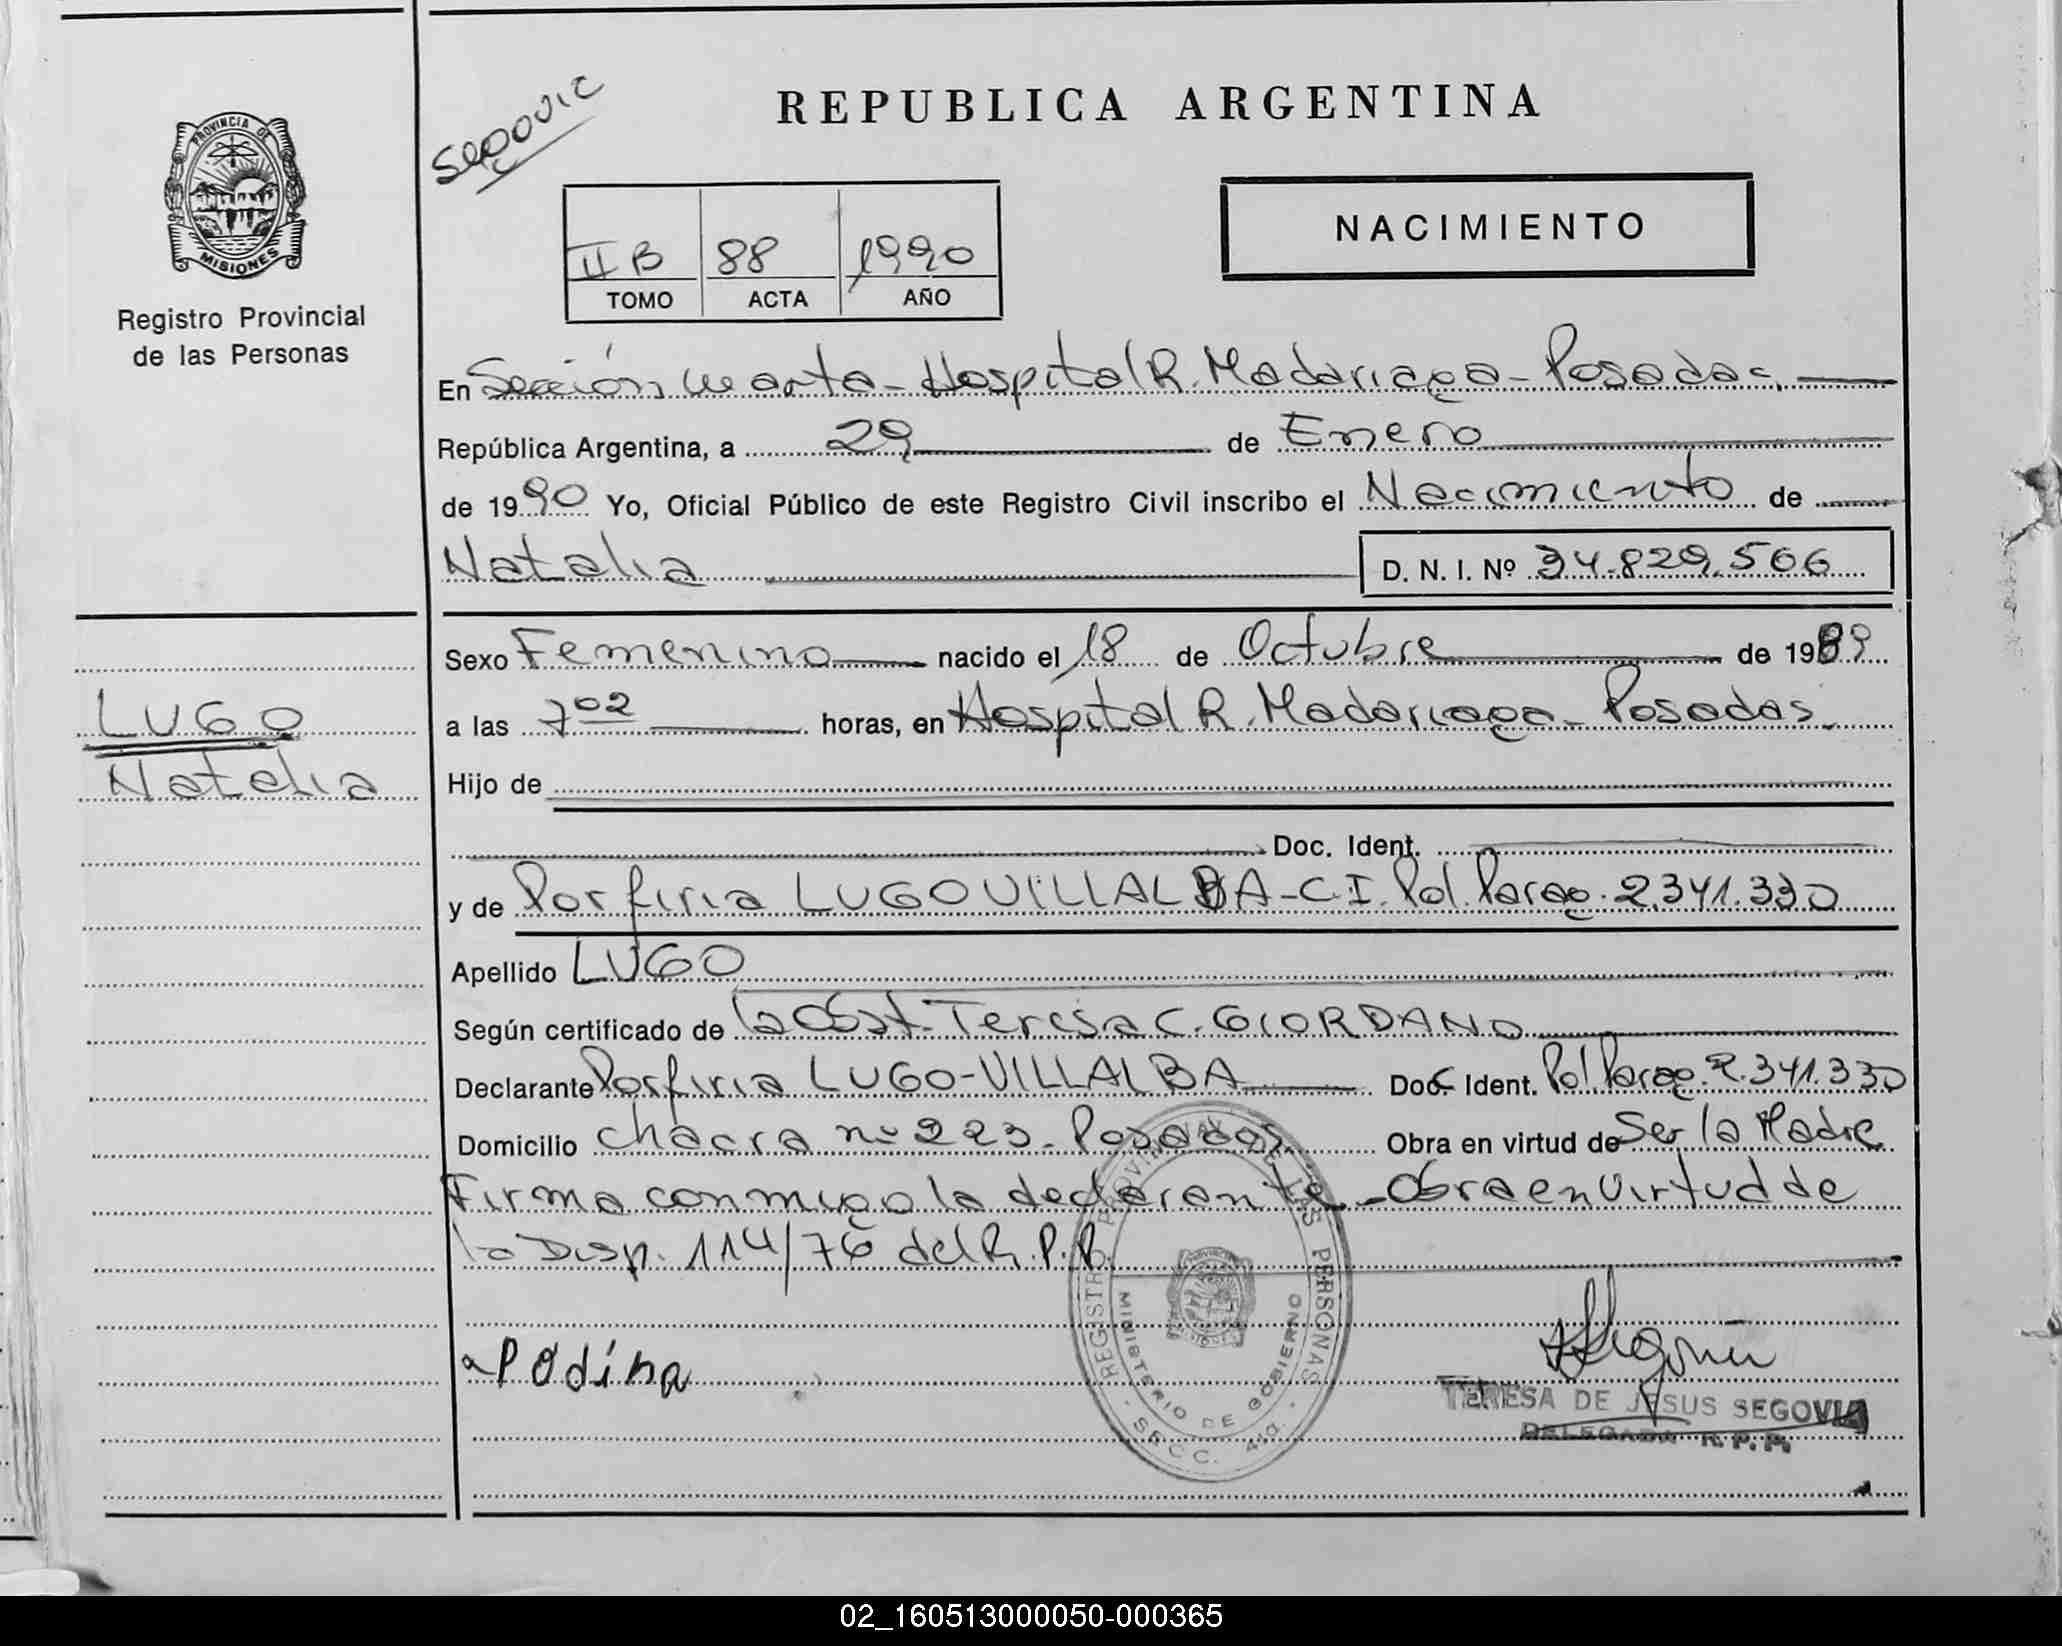 REPUBLICA ARGENTINA
PROVINCIA DE
MISIONES
Registro Provincial
de las Personas
NACIMIENTO
II B 88 1990
TOMO ACTA AÑO
En Sección cuarta - Hospital R. Madariaga - Posadas
República Argentina, a 29 de Enero
de 1990 Yo, Oficial Público de este Registro Civil inscribo el Nacimiento de
Natalia D. N. I. Nº 34.829.566
Sexo Femenino nacido el 18 de Octubre de 1989
LUGO
Natalia
a las 7 02 horas, en Hospital R. Madariaga - Posadas
Hijo de
Doc. Ident.
y de Porfiria LUGO VILLALBA - C.I. Pol. Parag. 2.341.330
Apellido LUGO
Según certificado de la Obst. Teresa C. GIORDANO
Declarante Porfiria LUGO-VILLALBA Doc. Ident. Pol Parag. 2.341.330
Domicilio chacra nº 223 - Posadas Obra en virtud de Ser la Madre
Firma conmigo la declarante - Obra en virtud de
la Disp. 114/76 del R.P.P.
REGISTRO PROVINCIAL DE LAS PERSONAS
MINISTERIO DE GOBIERNO
SECC. 4ta.
TERESA DE JESUS SEGOVIA
DELEGADA R. P. P.
02_160513000050-000365